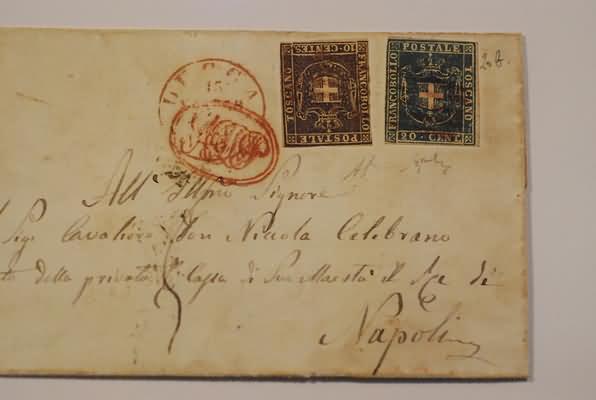 DECCA
15
10 CENTES.
FRANCOBOLLO
POSTALE
TOSCANO
FRANCOBOLLO
POSTALE
TOSCANO
20 CENT
All' Illmo Signore
Sig. Cavaliere Don Nicola Celebrano
della privata Cassa di Sua Maestà il Re di
Napoli